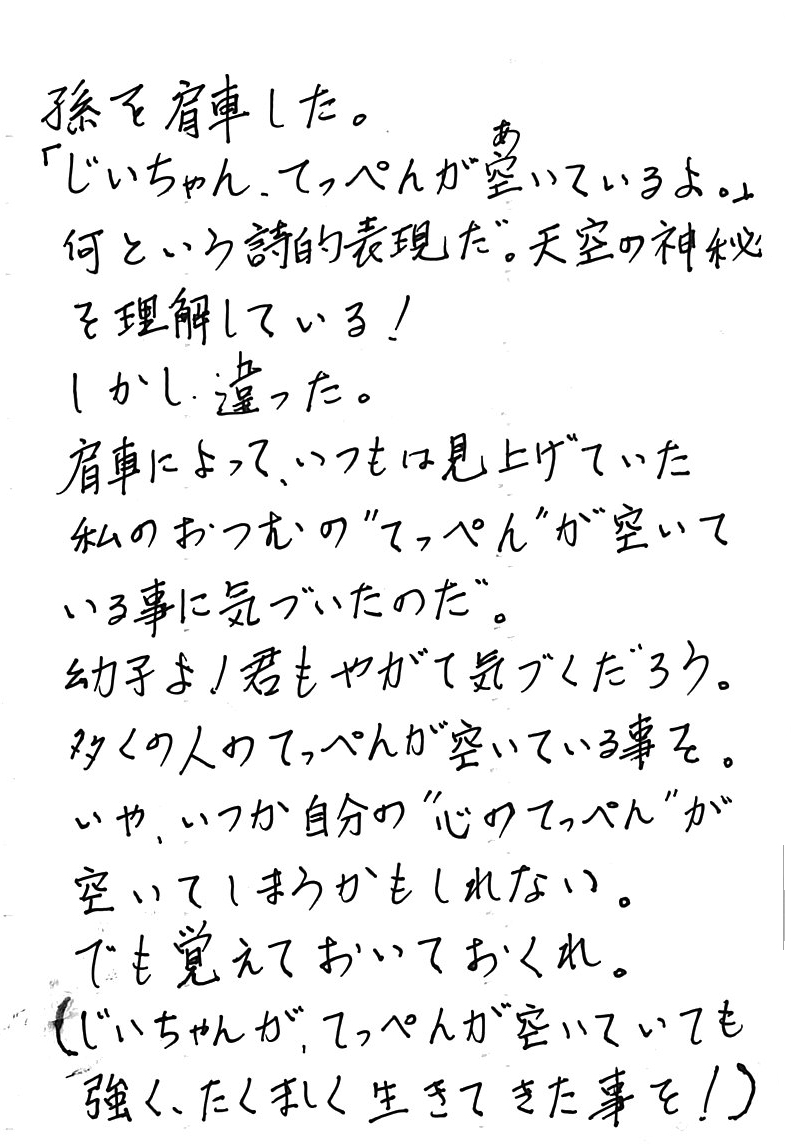 孫を肩車した。
「じいちゃん、てっぺんが空いているよ。」
何という詩的表現だ。天空の神秘
を理解している!
しかし、違った。
肩車によって、いつもは見上げていた
私のおつむの"てっぺん"が空いて
いる事に気づいたのだ。
幼子よ!君もやがて気づくだろう。
多くの人のてっぺんが空いている事を。
いや、いつか自分の"心のてっぺん"が
空いてしまうかもしれない。
でも覚えておいておくれ。
(じいちゃんが、てっぺんが空いていても
強く、たくましく生きてきた事を!)